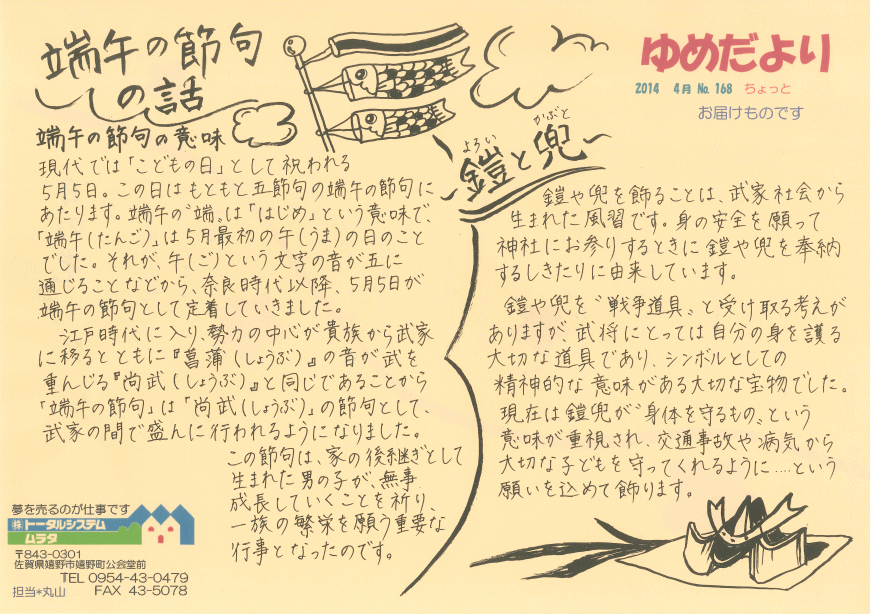 端午の節句
の話
端午の節句の意味
現代では「こどもの日」として祝われる
5月5日。この日はもともと五節句の端午の節句に
あたります。端午の〝端〟は「はじめ」という意味で、
「端午(たんご)」は5月最初の午(うま)の日のこと
でした。それが、午(ご)という文字の音が五に
通じることなどから、奈良時代以降、5月5日が
端午の節句として定着していきました。
江戸時代に入り、勢力の中心が貴族から武家
に移るとともに『菖蒲(しょうぶ)』の音が武を
重んじる『尚武(しょうぶ)』と同じであることから
「端午の節句」は「尚武(しょうぶ)」の節句として、
武家の間で盛んに行われるようになりました。
この節句は、家の後継ぎとして
生まれた男の子が、無事
成長していくことを祈り、
一族の繁栄を願う重要な
行事となったのです。
夢を売るのが仕事です
㈱トータルシステム
ムラタ
〒843-0301
佐賀県嬉野市嬉野町公会堂前
TEL 0954-43-0479
担当*丸山 FAX 43-5078
ゆめだより
2014 4月 No.168 ちょっと
お届けものです
よろい かぶと
鎧と兜
鎧や兜を飾ることは、武家社会から
生まれた風習です。身の安全を願って
神社にお参りするときに鎧や兜を奉納
するしきたりに由来しています。
鎧や兜を〝戦争道具〟と受け取る考えが
ありますが武将にとっては自分の身を護る
大切な道具であり、シンボルとしての
精神的な意味がある大切な宝物でした。
現在は鎧兜が〝身体を守るもの〟という
意味が重視され、交通事故や病気から
大切な子どもを守ってくれるように....という
願いを込めて飾ります。